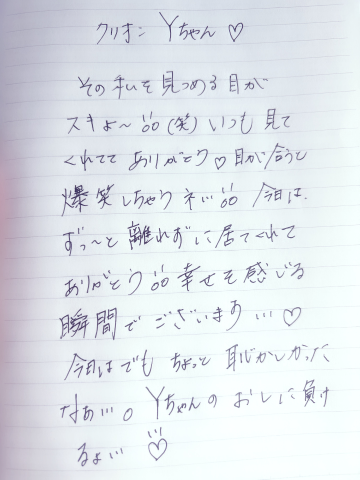 クリオネ Yちゃん♡
その私を見つめる目が
スキよ〜(笑) いつも見て
くれててありがとう♡目が合うと
爆笑しちゃうネ… 今日は、
ずっ〜と離れずに居てくれて
ありがとう 幸せを感じる
瞬間でございます…♡
今日はでもちょっと恥かしかった
なぁ…。Yちゃんのおしに負け
るよ…♡